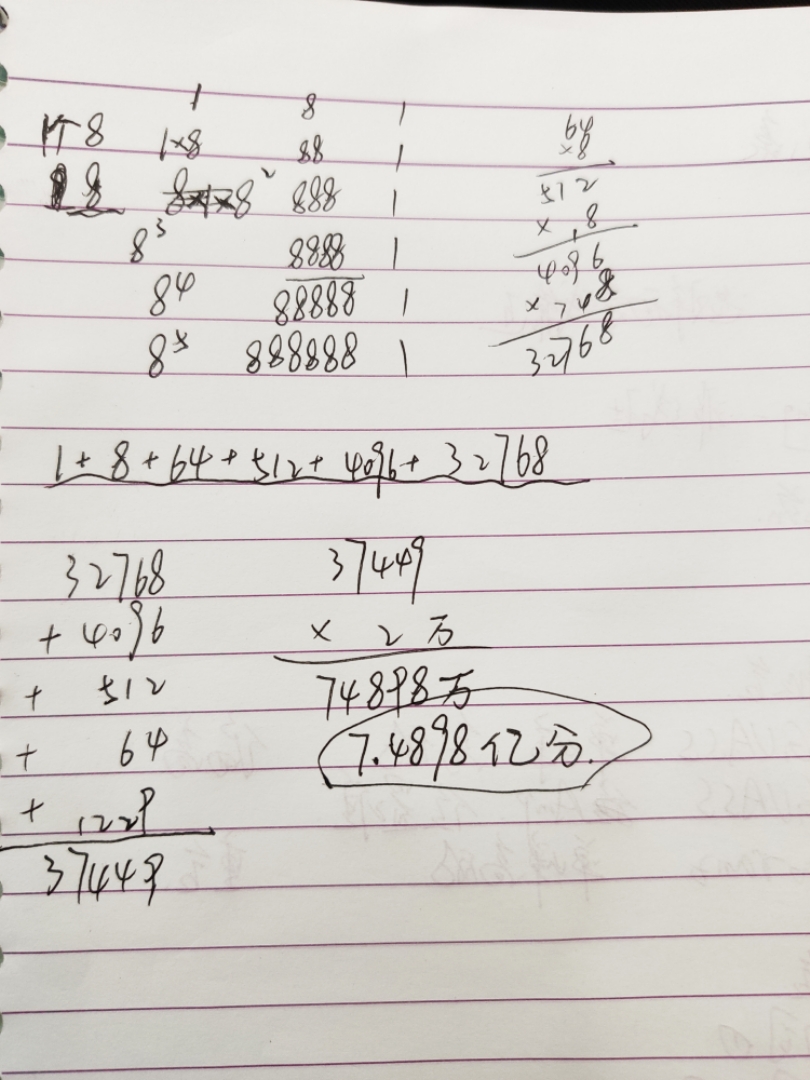 1 8 1
PT 8 1×8 88 1
8 8² 888 1
8³ 8888 1
8⁴ 88888 1
8⁵ 888888 1
64
×8
512
× 8
4096
× 8
32768
1+8+64+512+4096+32768
32768
+ 4096
+ 512
+ 64
+ 9
37449
37449
× 2万
74898万
7.4898亿分.